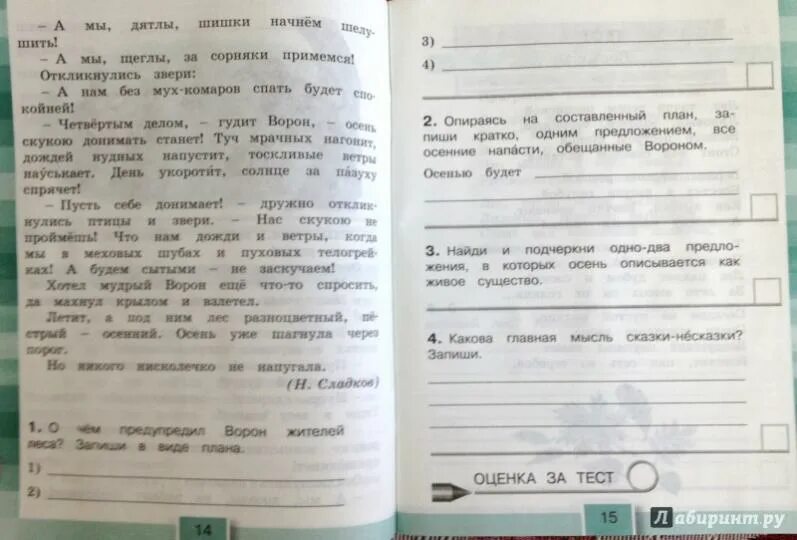 – А мы, дятлы, шишки начнём шелу-
шить!
– А мы, щеглы, за сорняки примемся!
Откликнулись звери:
– А нам без мух-комаров спать будет спо-
койней!
– Четвёртым делом, – гудит Ворон, – осень
скукою донимать станет! Туч мрачных нагонит,
дождей нудных напустит, тоскливые ветры
нау́ськает. День укоротит, солнце за па́зуху
спрячет!
– Пусть себе донимает! – дружно отклик-
нулись птицы и звери. – Нас скукою не
проймёшь! Что нам дожди и ветры, когда
мы в меховых шубах и пуховых телогрей-
ках! А будем сытыми – не заскучаем!
Хотел мудрый Ворон ещё что-то спросить,
да махнул крылом и взлетел.
Летит, а под ним лес разноцветный, пё-
стрый – осенний. Осень уже шагнула через
порог.
Но никого нисколечко не напугала.
(Н. Сладков)
1. О чём предупредил Ворон жителей
леса? Запиши в виде плана.
1)
2)
14
3)
4)
2. Опираясь на составленный план, за-
пиши кратко, одним предложением, все
осенние напа́сти, обещанные Вороном.
Осенью будет
3. Найди и подчеркни одно-два предло-
жения, в которых осень описывается как
живое существо.
4. Какова главная мысль сказки-не́сказки?
Запиши.
ОЦЕНКА ЗА ТЕСТ
15
Лабиринт.ру